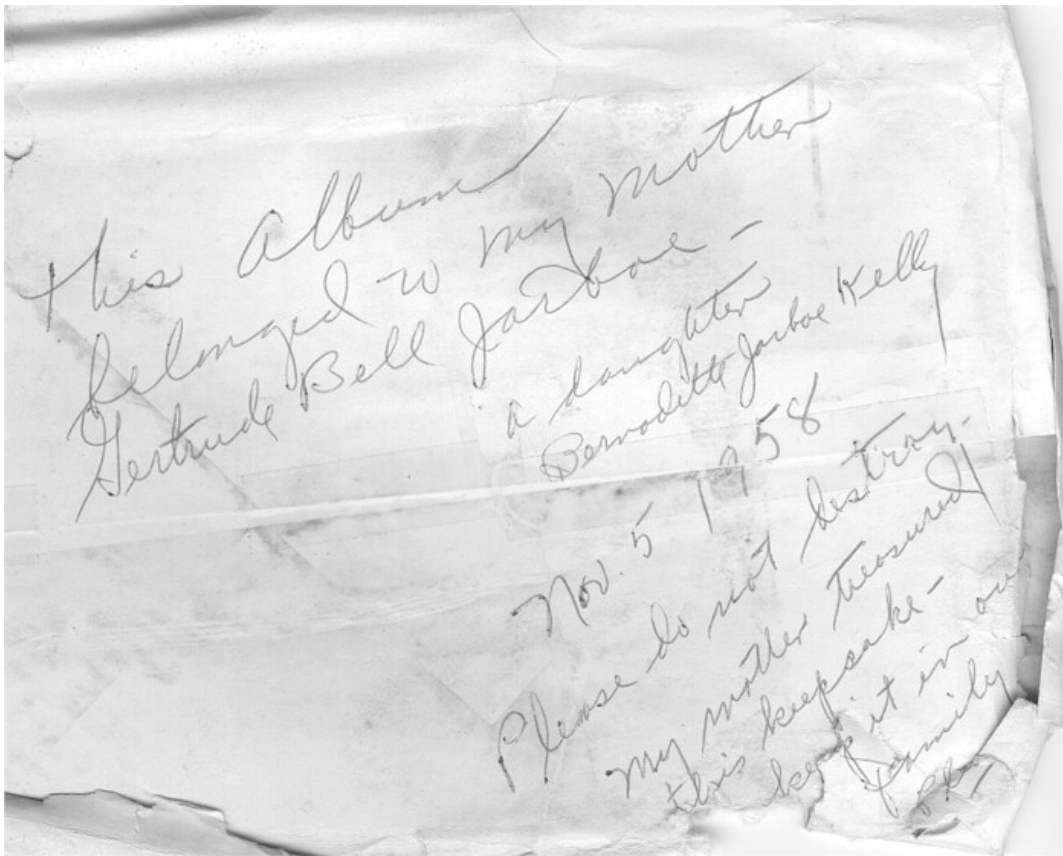 This Album
belonged to my Mother
Gertrude Bell Jarboe -
a daughter
Bernadette Jarboe Kelly
Nov. 5 1958
Please do not destroy.
My mother treasured
this keepsake -
keep it in our
family